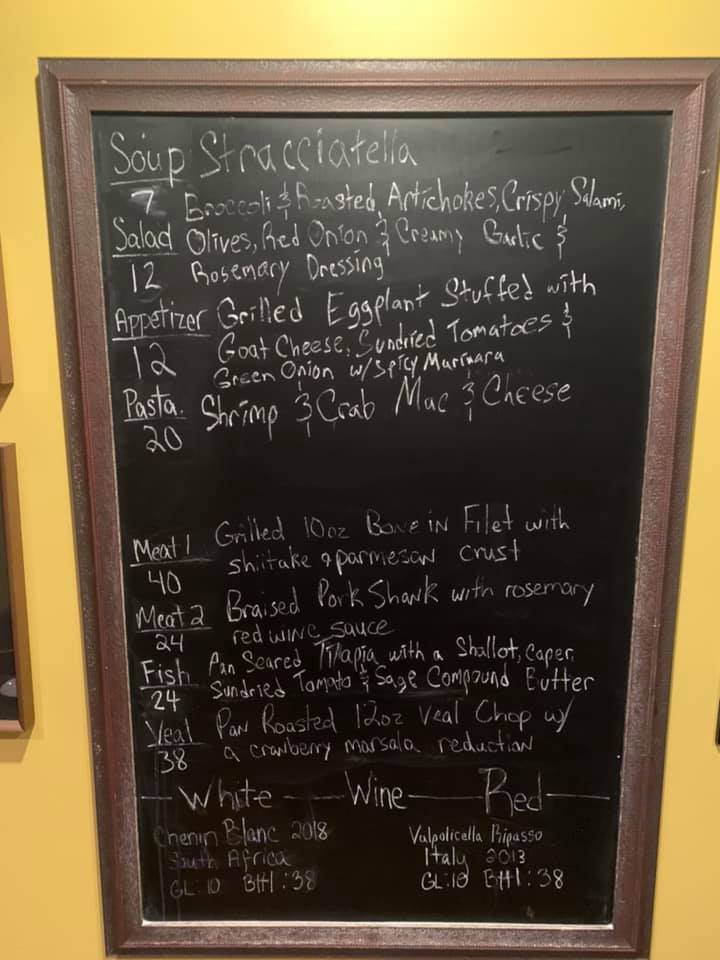 Soup Stracciatella
7 Broccoli & Roasted Artichokes, Crispy Salami,
Salad Olives, Red Onion & Creamy Garlic &
12 Rosemary Dressing
Appetizer Grilled Eggplant Stuffed with
12 Goat Cheese, Sundried Tomatoes &
Green Onion w/ Spicy Marinara
Pasta. Shrimp & Crab Mac & Cheese
20
Meat 1 Grilled 10oz Bone in Filet with
40 shiitake & parmesan crust
Meat 2 Braised Pork Shank with rosemary
24 red wine sauce
Fish Pan Seared Tilapia with a Shallot, caper,
24 Sundried Tomato & Sage Compound Butter
Veal Pan Roasted 12oz Veal Chop w/
38 a cranberry marsala reduction
White Wine Red
Chenin Blanc 2018 Valpolicella Ripasso
South Africa Italy 2013
GL: 10 Btl: 38 GL: 10 Btl: 38